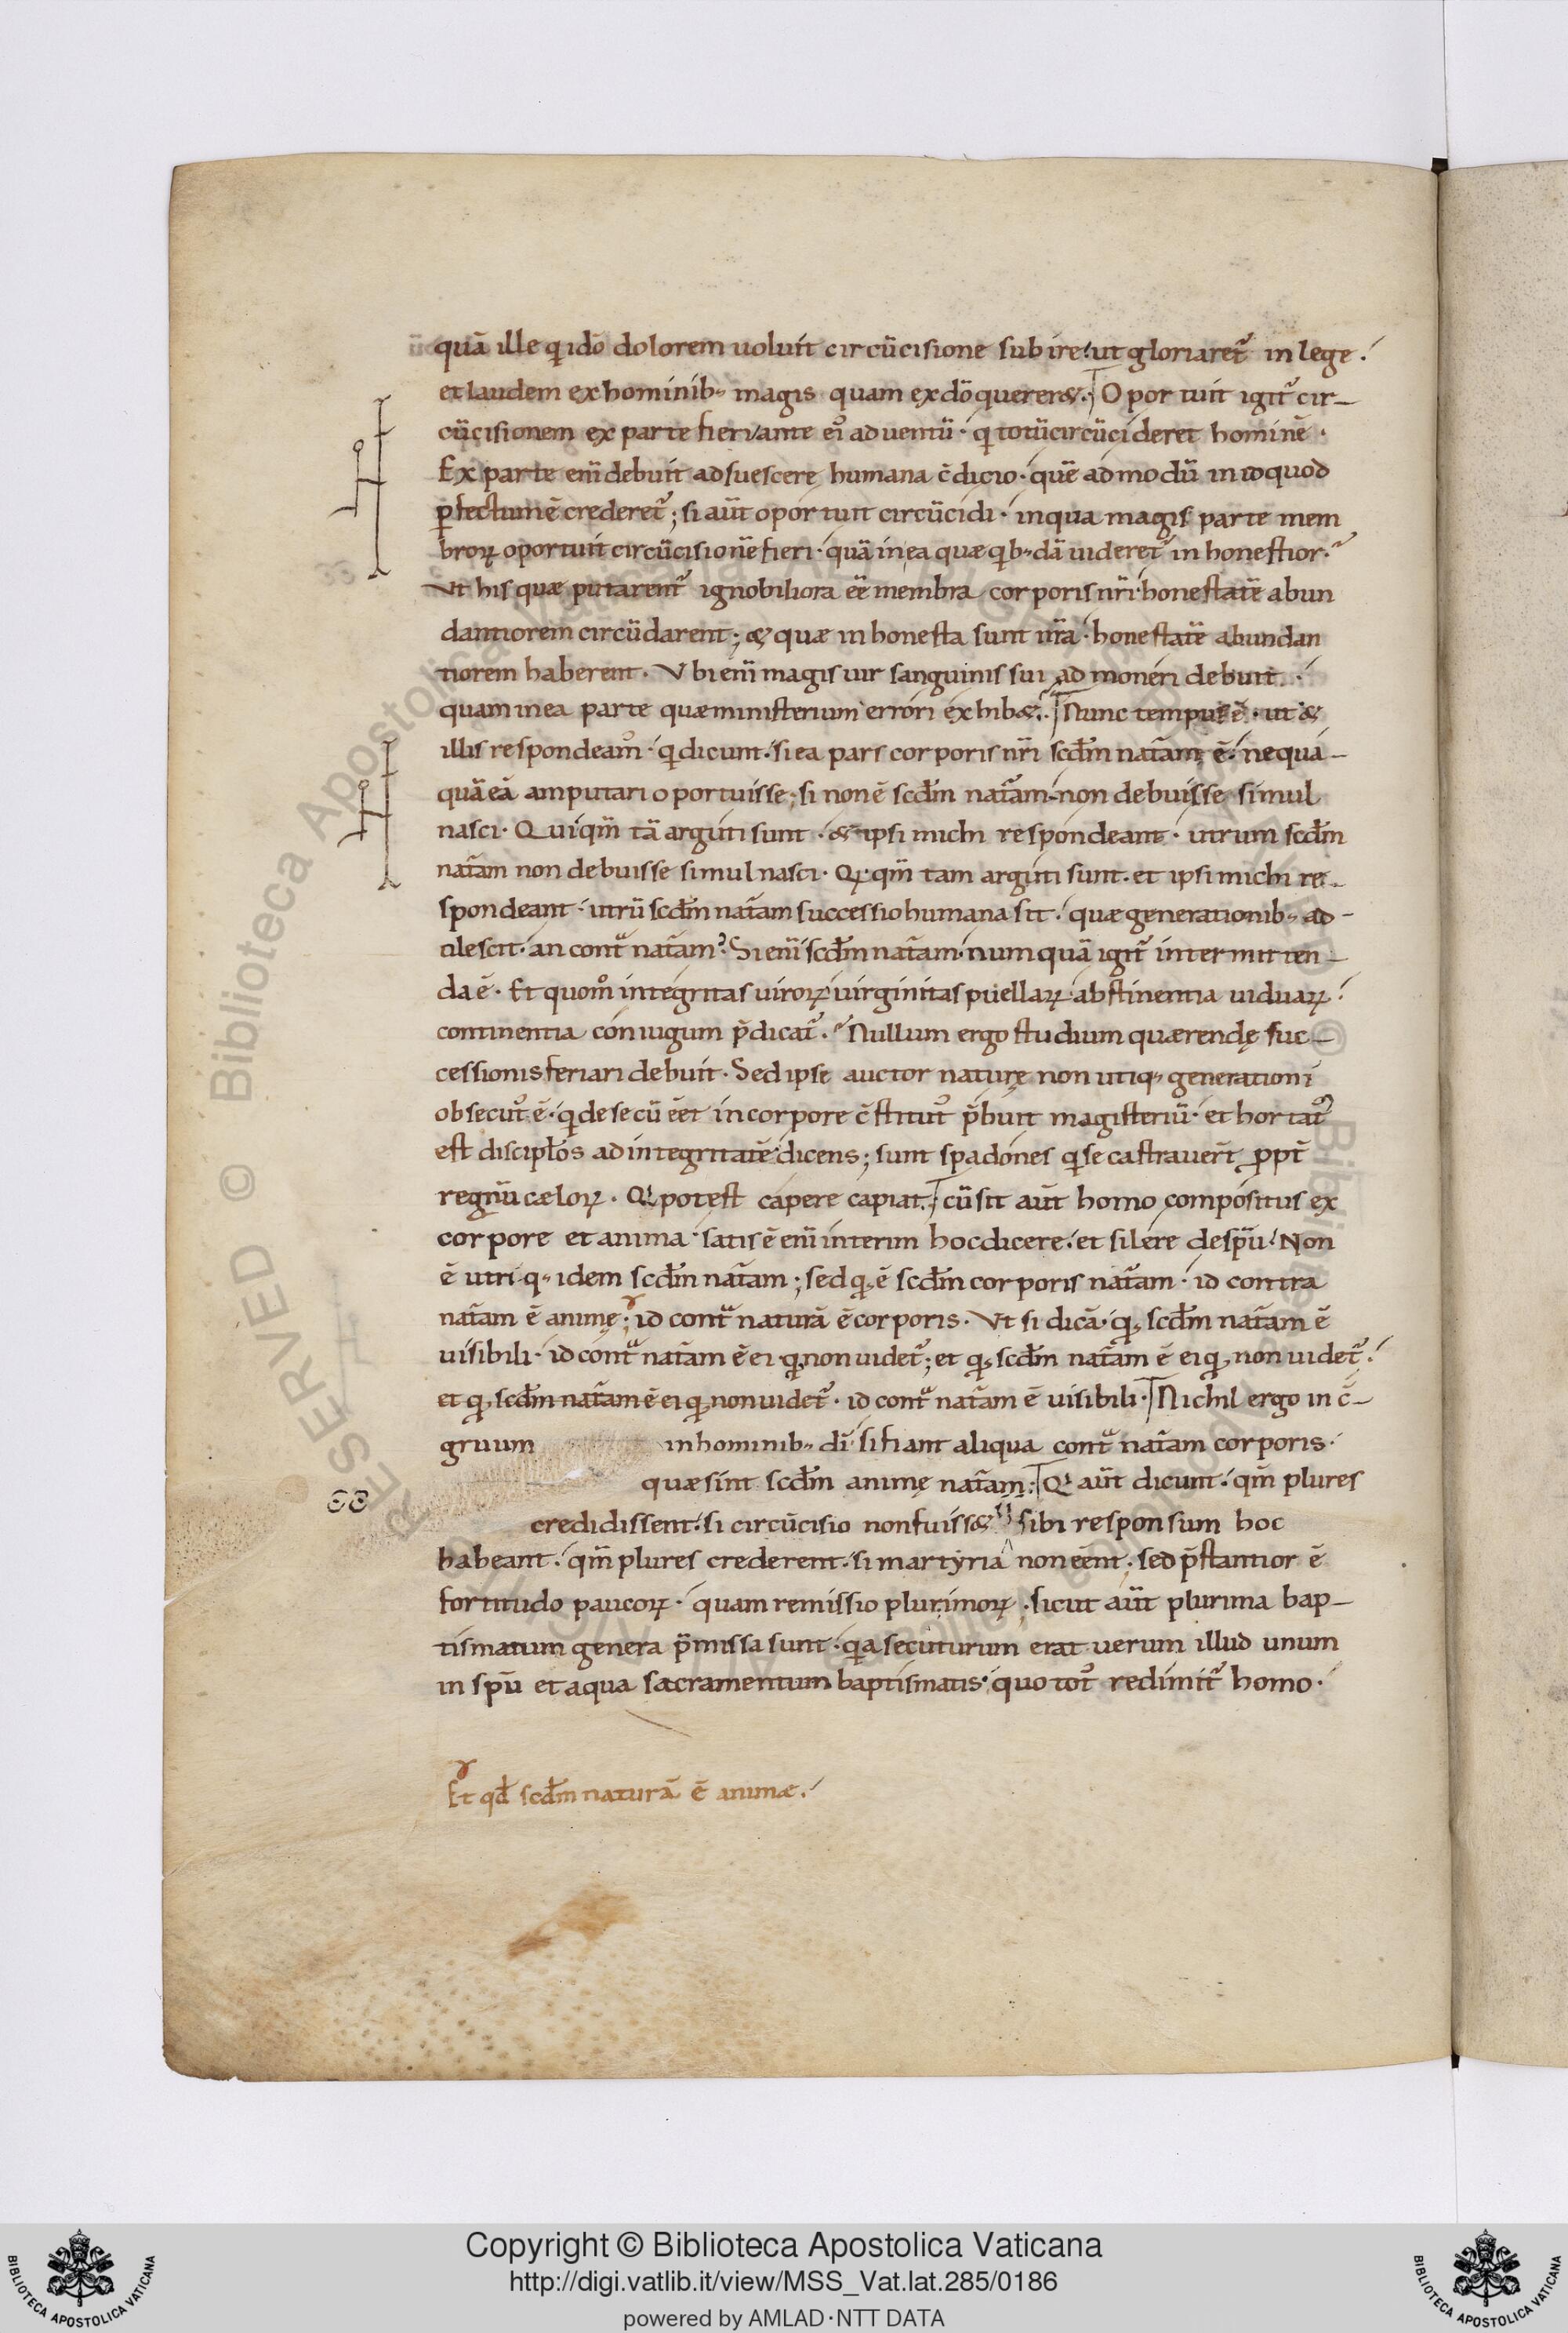 quā ille q ido dolorem uoluit circūcisione subire. ut gloriaret in lege.
et laudem ex hominib; magis quam ex dō quereret. Oportuit igit cir-
cūcisionem ex parte fieri ante ei aduentū. q totū circūcideret hominē.
Ex parte enī debuit adsuescere humana c̄dicio. quē admodū in id quod
ꝑfectum ē crederet; si aūt oportuit circūcidi. in qua magis parte mem
broꝝ oportuit circūcisionē fieri. quā in ea quæ qb;dā uideret in honestior.
Vt his quæ putarent ignobiliora eē membra corporis nr̄i. honestatē abun
dantiorem circūdarent; & quæ in honesta sunt nr̄a. honestatē abundan
tiorem haberent. Vbi enī magis uir sanguinis sui admoneri debuit.
quam in ea parte quæ ministerium errori exhib&. Nunc tempus ē. ut &
illis respondeam. q dicunt. si ea pars corporis nr̄i scdm nat̄am ē. nequa-
quā eā amputari oportuisse; si non ē scdm nat̄am non debuisse simul
nasci. Qui qm̄ tā arguti sunt. & ipsi michi respondeant. utrum scdm
nat̄am non debuisse simul nasci. Q qm̄ tam arguti sunt. et ipsi michi re-
spondeant. utrū scdm nat̄am successio humana sit. quæ generationib; ad-
olescit. an cont nat̄am? Si enī scdm nat̄am. num quā igit intermitten-
da ē. Et quom integritas uiroꝝ uirginitas puellaꝝ. abstinentia uiduaꝝ.
continentia coniugum p̄dicat. Nullum ergo studium quærendę suc-
cessionis feriari debuit. Sed ipse auctor naturę non utiq; generationi
obsecut ē. q de se cū eēt in corpore c̄stitut p̄buit magisteriū. et hortat
est discipłos ad integritatē dicens; sunt spadones q se castrauert̄ ppt̄
regnū cæloꝝ. Q potest capere capiat. cū sit aūt homo compositus ex
corpore et anima. satis ē enī interim hoc dicere. et silere de spū. Non
ē utriq; idem scdm nat̄am; sed q ē scdm corporis nat̄am. id contra
nat̄am ē animę; id cont naturā ē corporis. Vt si dicā. q scdm nat̄am ē
uisibili. id cont nat̄am ē ei q non uidet; et q scdm nat̄am ē ei q non uidet.
et q scdm nat̄am ē ei q non uidet. id cont nat̄am ē uisibili. Nichil ergo in c̄-
gruum in hominib; di si fiant aliqua cont nat̄am corporis.
quæ sint scdm animę nat̄am. Q aūt dicunt. qm̄ plures
credidissent. si circūcisio non fuiss& sibi responsum hoc
habeant. qm̄ plures crederent. si martyria non eēnt. sed p̄stantior ē
fortitudo paucoꝝ. quam remissio plurimoꝝ. sicut aūt plurima bap-
tismatum genera p̄missa sunt. qa secuturum erat uerum illud unum
in spū et aqua sacramentum baptismatis. quo tot redimit homo.
Et qd scdm naturā ē animæ.
Copyright © Biblioteca Apostolica Vaticana
http://digi.vatlib.it/view/MSS_Vat.lat.285/0186
powered by AMLAD·NTT DATA
BIBLIOTECA APOSTOLICA VATICANA
BIBLIOTECA APOSTOLICA VATICANA